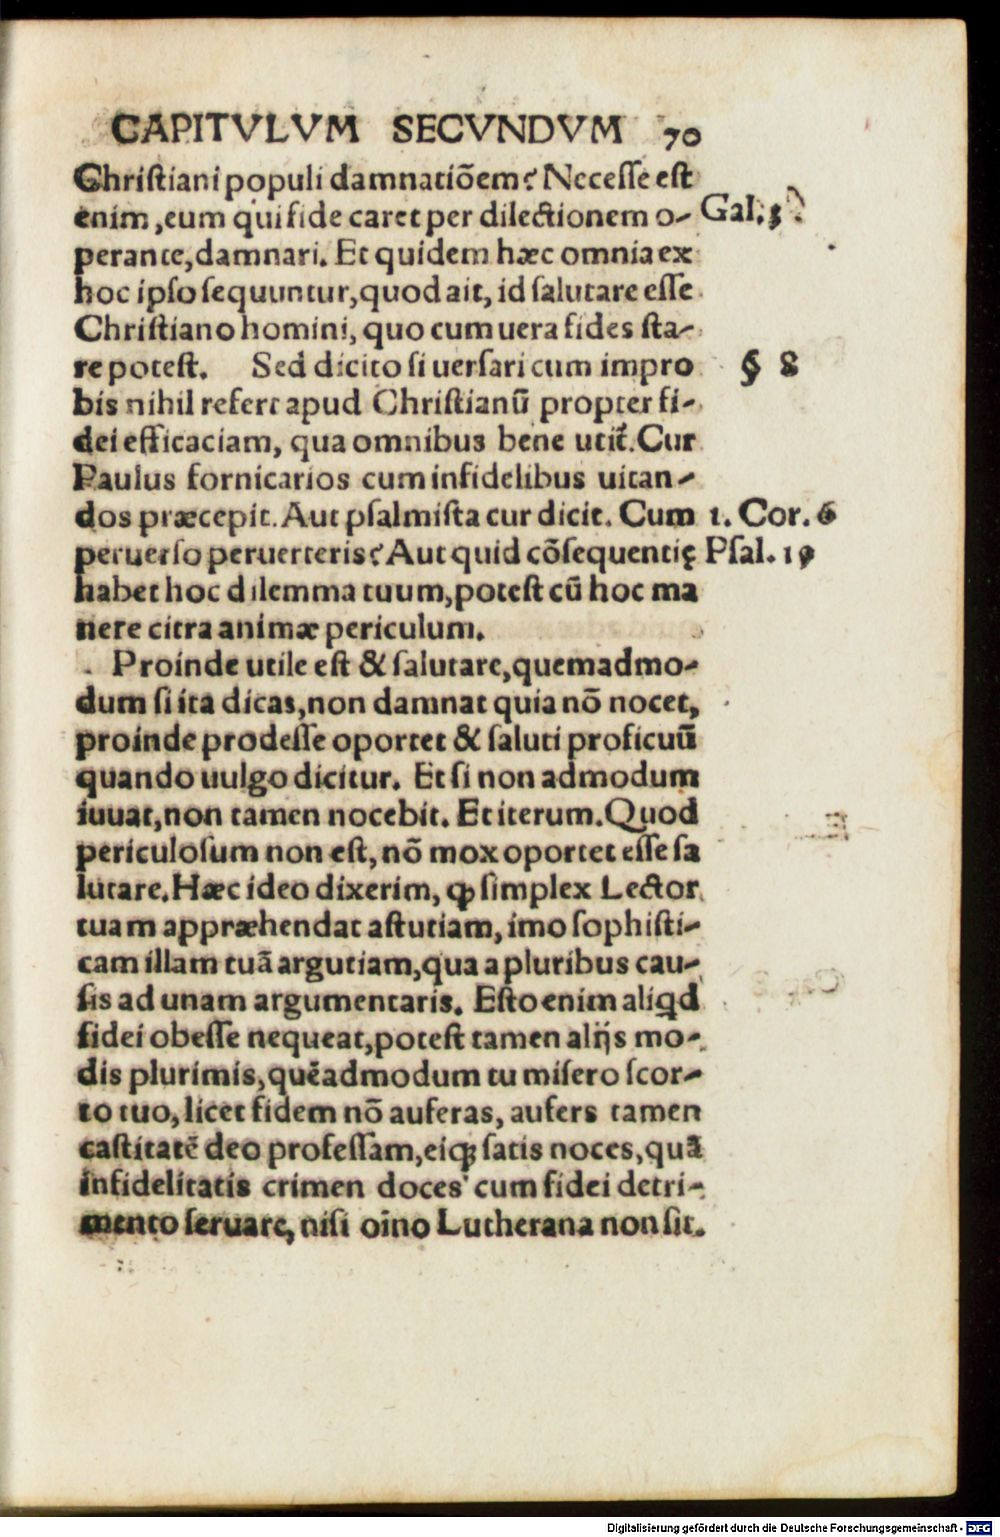 CAPITVLVM SECVNDVM 70
Christiani populi damnatiõem? Necesse est
enim, eum qui fide caret per dilectionem o- Gal. 5.
perante, damnari. Et quidem hæc omnia ex
hoc ipso sequuntur, quod ait, id salutare esse
Christiano homini, quo cum uera fides sta-
re potest. Sed dicito si uersari cum impro § 8
bis nihil refert apud Christianũ propter fi-
dei efficaciam, qua omnibus bene utit̃. Cur
Paulus fornicarios cum infidelibus uitan-
dos præcepit. Aut psalmista cur dicit. Cum 1. Cor. 6
peruerso peruerteris? Aut quid cõsequentię Psal. 19
habet hoc dilemma tuum, potest cũ hoc ma
nere citra animæ periculum.
Proinde utile est & salutare, quemadmo-
dum si ita dicas, non damnat quia nõ nocet,
proinde prodesse oportet & saluti proficuũ
quando uulgo dicitur. Et si non admodum
iuuat, non tamen nocebit. Et iterum. Quod
periculosum non est, nõ mox oportet esse sa
lutare. Hæc ideo dixerim, ꝙ simplex Lector
tuam appræhendat astutiam, imo sophisti-
cam illam tuã argutiam, qua a pluribus cau-
sis ad unam argumentaris. Esto enim aliqd
fidei obesse nequeat, potest tamen alijs mo-
dis plurimis, quẽadmodum tu misero scor-
to tuo, licet fidem nõ auferas, aufers tamen
castitatẽ deo professam, eiqꝫ satis noces, quã
infidelitatis crimen doces cum fidei detri-
mento seruare, nisi oĩno Lutherana non sit.
Digitalisierung gefördert durch die Deutsche Forschungsgemeinschaft - DFG